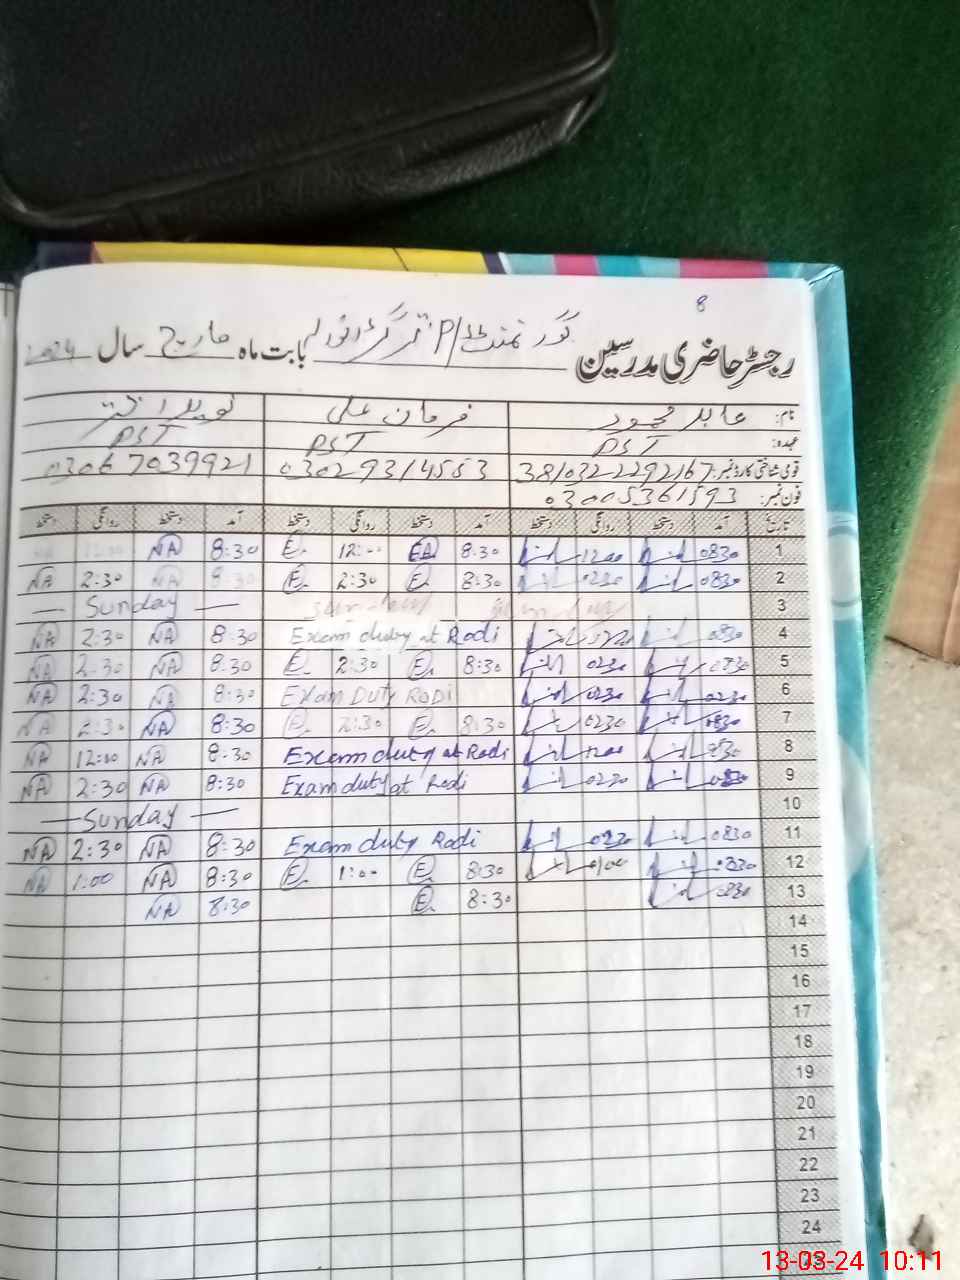 8
رجسٹر حاضری مدرسین گورنمنٹ P/ بابت ماہ مارچ سال 2024
نام: عابد محمود فرمان علی نوید اختر
عہدہ: PST PST PST
قومی شناختی کارڈ نمبر: 3810322292167 03029314553 03067039921
فون نمبر: 03005361593
تاریخ آمد دستخط روانگی دستخط آمد دستخط روانگی دستخط آمد دستخط روانگی دستخط
1 0830 1200 8:30 EA 12:00 E 8:30 NA
2 0830 0230 8:30 E 2:30 E 8:30 NA 2:30 NA
3 Sunday Sunday — Sunday —
4 0830 Exam duty at Rodi 8:30 NA 2:30 NA
5 0830 0230 8:30 E 2:30 E 8:30 NA 2:30 NA
6 0230 0230 Exam Duty Rodi 8:30 NA 2:30 NA
7 0830 0230 8:30 E 2:30 E 8:30 NA 2:30 NA
8 0830 1200 Exam duty at Rodi 8:30 NA 12:00 NA
9 0830 0230 Exam duty at Rodi 8:30 NA 2:30 NA
10 — Sunday —
11 0830 0230 Exam duty Rodi 8:30 NA 2:30 NA
12 0830 0100 8:30 E 1:00 E 8:30 NA 1:00 NA
13 0830 8:30 E 8:30 NA
14
15
16
17
18
19
20
21
22
23
24
13-03-24 10:11